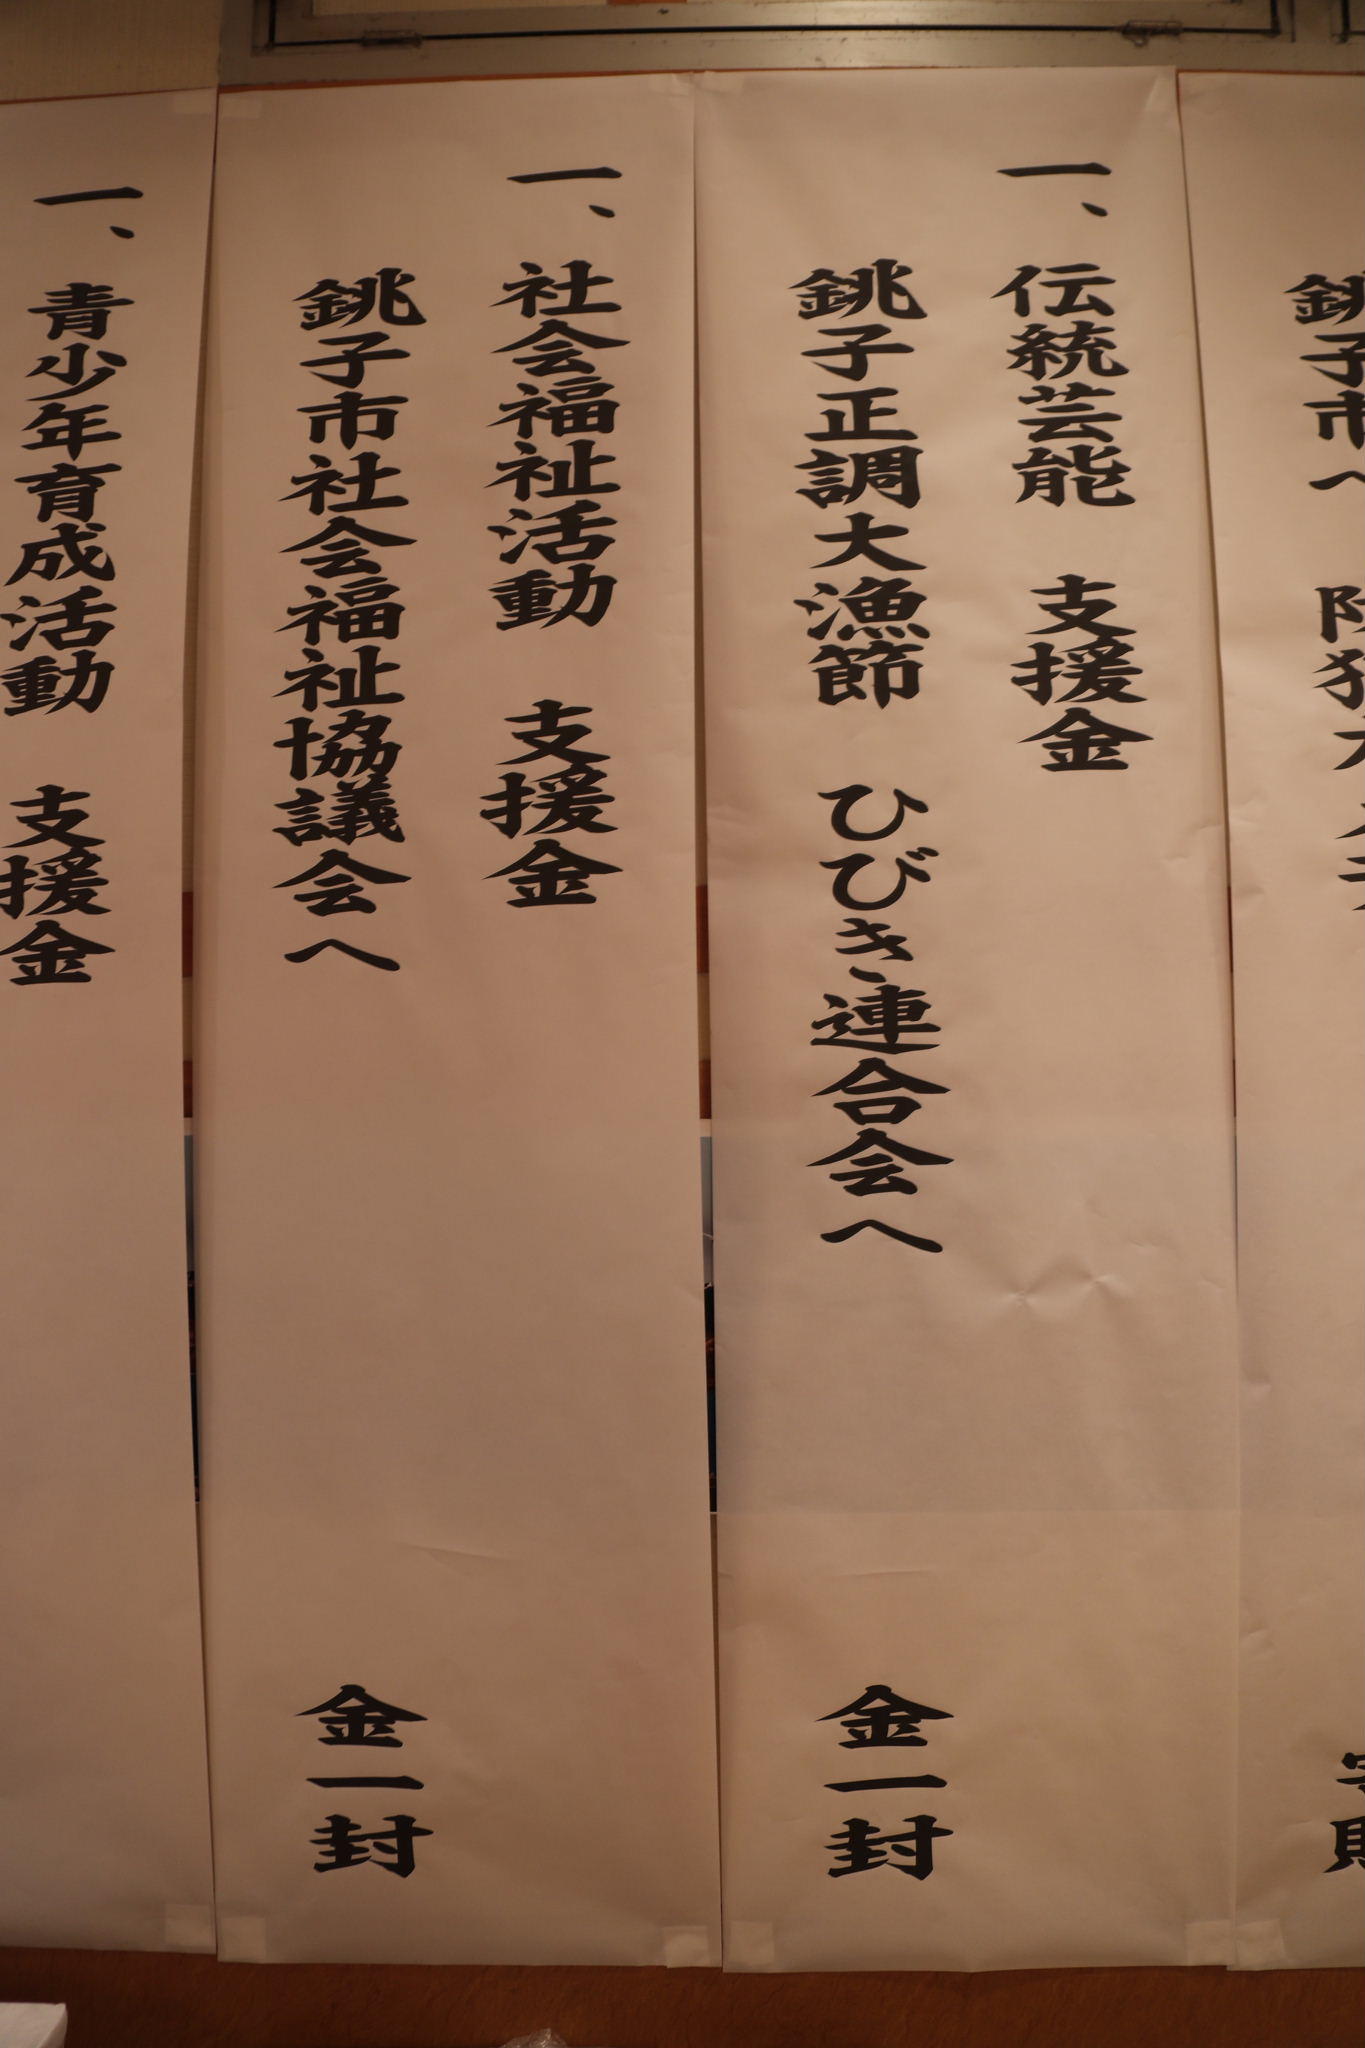 銚子市へ
一、伝統芸能　支援金
銚子正調大漁節　ひびき連合会へ
金一封
一、社会福祉活動　支援金
銚子市社会福祉協議会へ
金一封
一、青少年育成活動　支援金